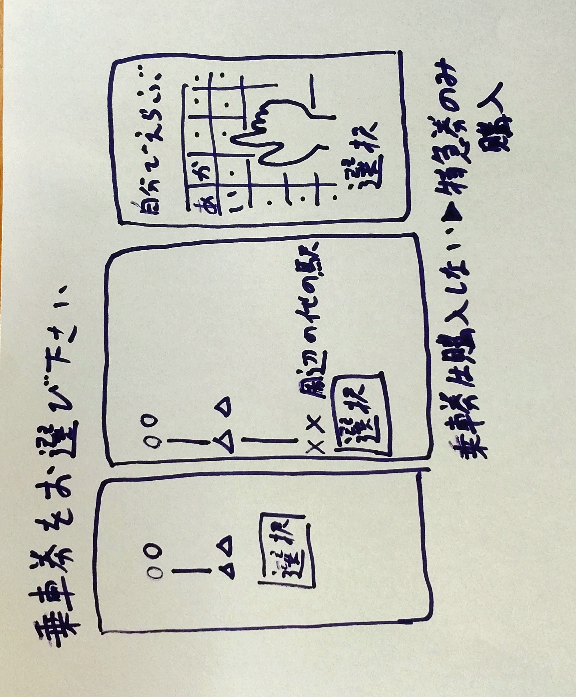 乗車券をお選び下さい
○○
△△
選択
○○
△△
×× 周辺の他の駅
選択
自分でえらぶ
あか
い
選択
乗車券は購入しない▶特急券のみ
購入